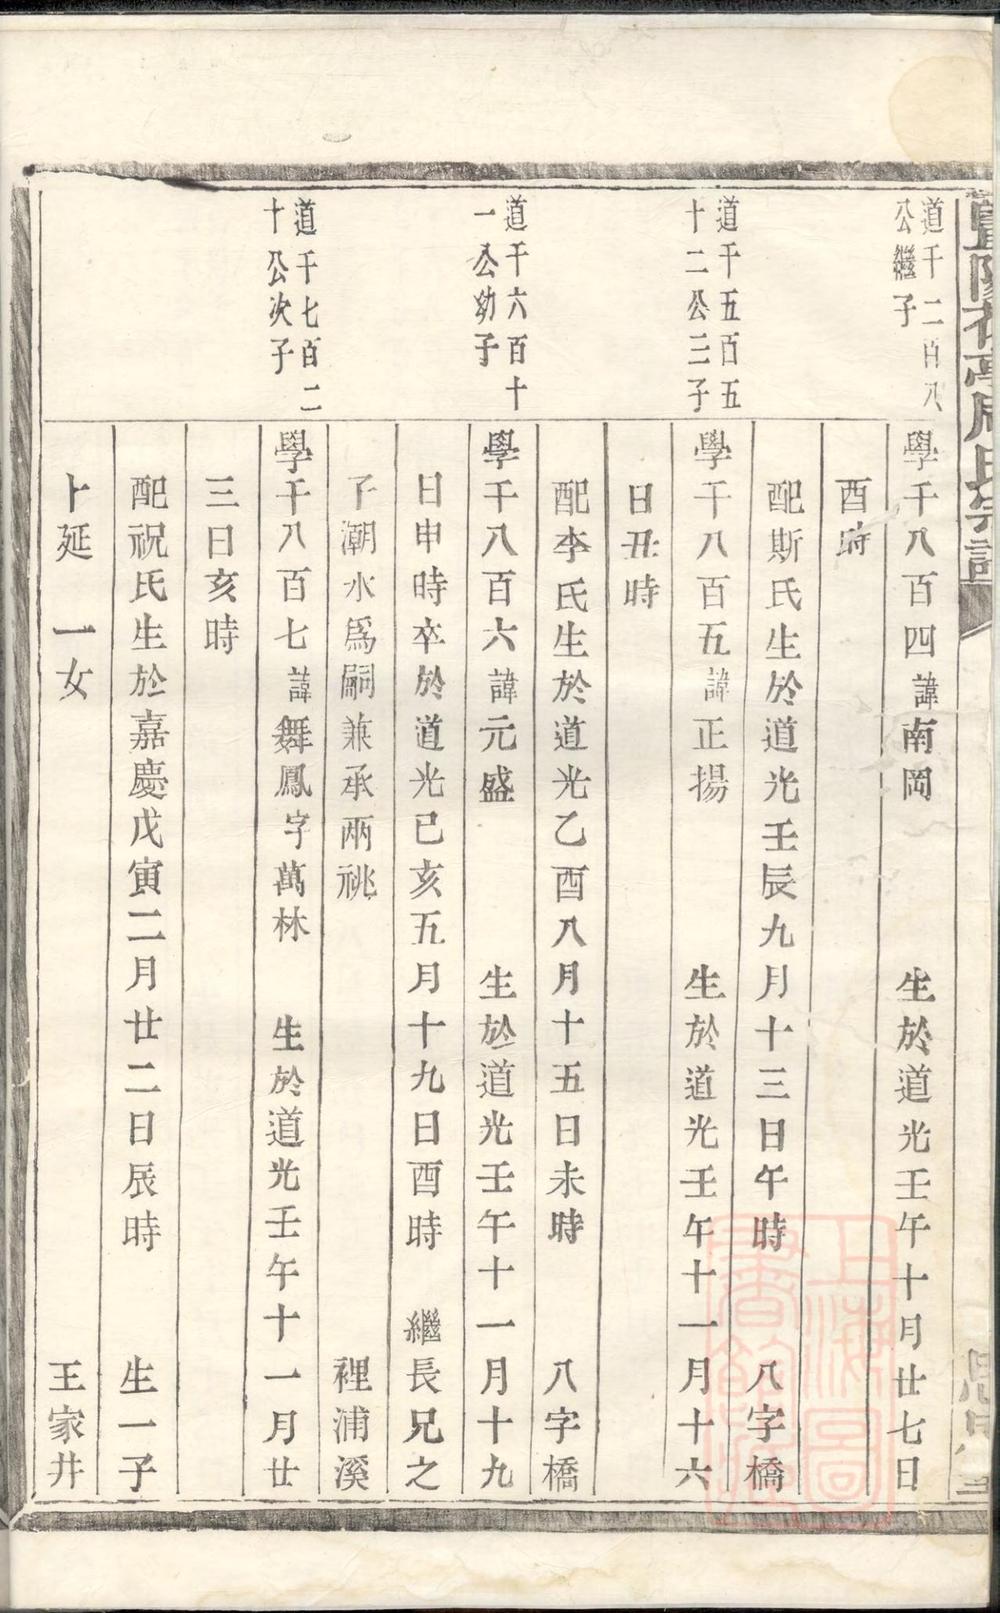 暨陽花亭周氏宗譜
道千二百八
公繼子
學千八百四諱南岡 生於道光壬午十月廿七日
酉時
配斯氏生於道光壬辰九月十三日午時 八字橋
道千五百五
十二公三子
學千八百五諱正揚 生於道光壬午十一月十六
日丑時
配李氏生於道光乙酉八月十五日未時 八字橋
道千六百十
一公幼子
學千八百六諱元盛 生於道光壬午十一月十九
日申時卒於道光己亥五月十九日酉時 繼長兄之
子潮水爲嗣兼承兩祧 裡浦溪
道千七百二
十公次子
學千八百七諱舞鳳字萬林 生於道光壬午十一月廿
三日亥時
配祝氏生於嘉慶戊寅二月廿二日辰時 生一子
卜延 一女 王家井
上海圖
書館藏